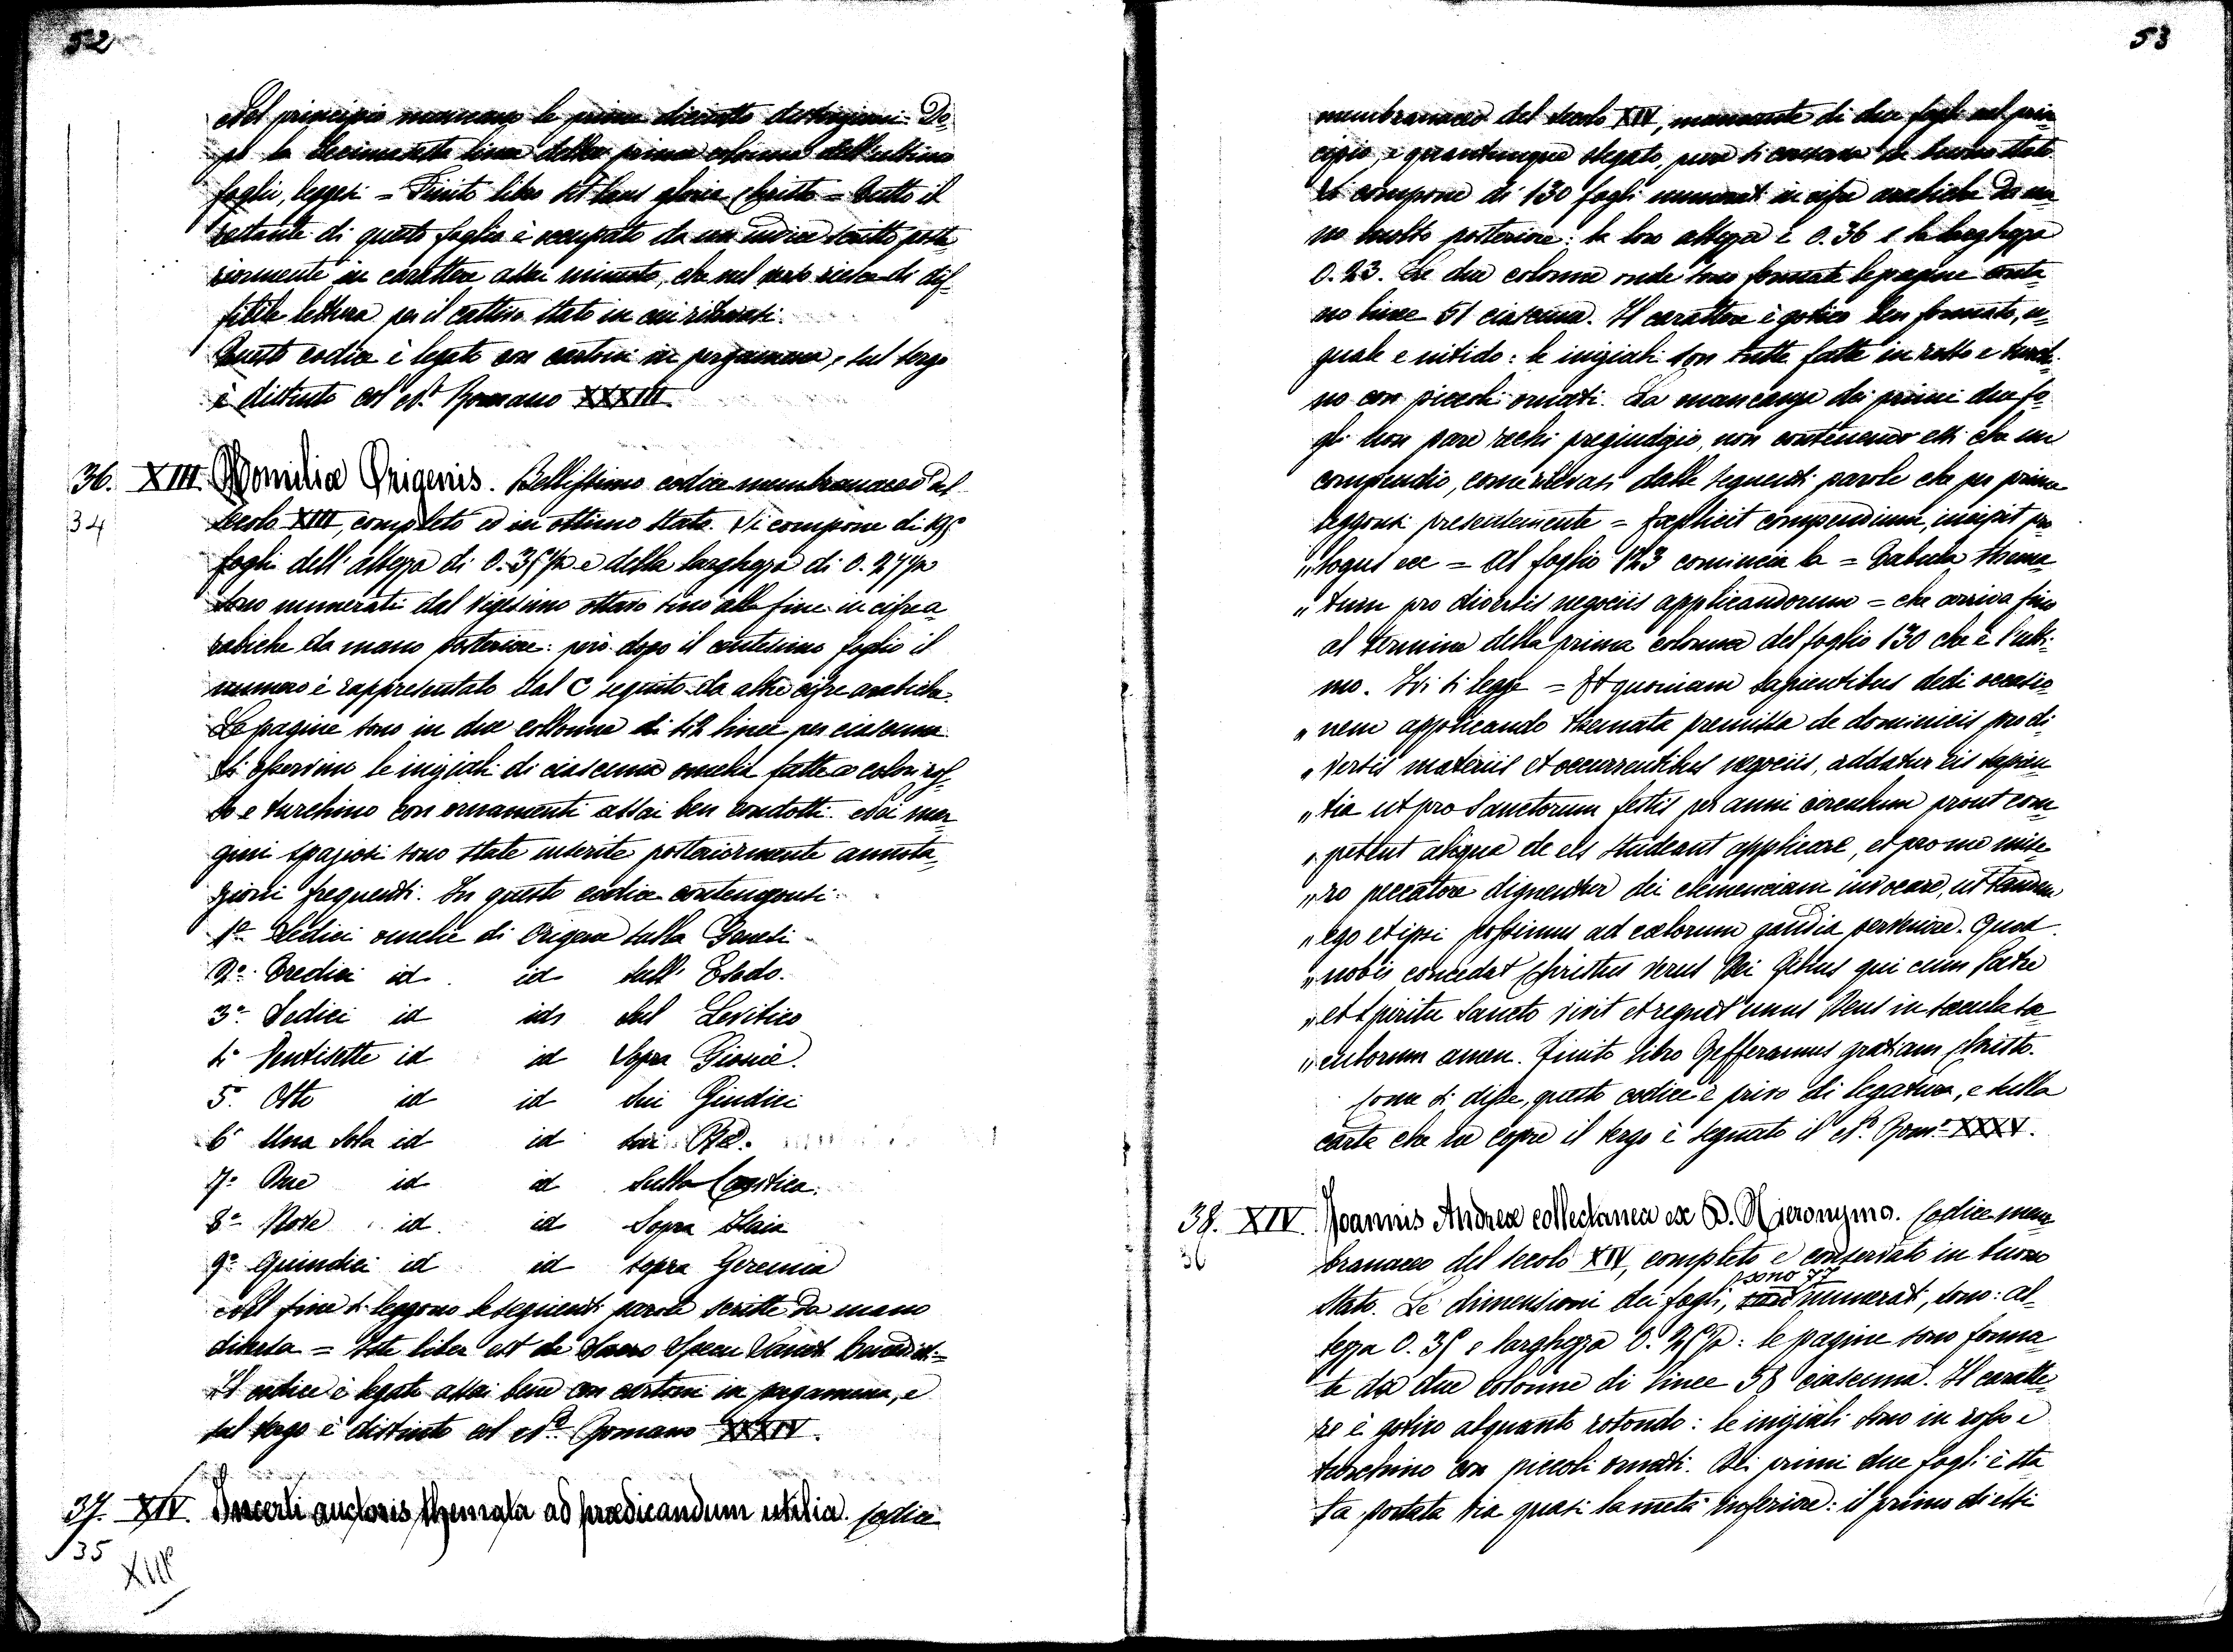 52
Nel principio mancano le prime diciotto distinzioni. Do-
po la decimasesta linea della prima colonna dell'ultimo
foglio, leggesi = Finito libro sit laus gloria Christo = Tutto il
restante di questo foglio è occupato da un indice scritto poste-
riormente in carattere assai minuto, che nel verso riesce di dif-
ficile lettura per il cattivo stato in cui ritrovasi.
Questo codice è legato con cartoni in pergamena, e sul tergo
è distinto col N.º Romano XXXIII.
36. XIII. Homiliæ Origenis. Bellissimo codice membranaceo del
34 secolo XIII, completo ed in ottimo stato. Si compone di
fogli dell'altezza di 0. e della larghezza di 0.
sono numerati dal vigesimo ottavo sino alla fine in cifre a-
rabiche da mano posteriore: però dopo il centesimo foglio il
numero è rappresentato dal C seguito da altre cifre arabiche.
Le pagine sono in due collonne di 42 linee per ciascuna.
Si osservino le iniziali di ciascuna omelia fatte a colori ros-
so e turchino con ornamenti assai ben condotti. Nei mar-
gini spaziosi sono state inserite posteriormente annota-
zioni frequenti. In questo codice contengonsi:
1º Sedici omelie di Origene sulla Genesi
2º Tredici id id sull' Esodo.
3º Sedici id id sul Levitico
4º Ventisette id id sopra Giosuè.
5º Otto id id sui Giudici
6º Una sola id id sui Re.
7º Due id id sulla Cantica.
8º Nove id id Sopra Isaia
9º Quindici id id sopra Geremia
Nel fine si leggono le seguenti parole scritte da mano
diversa = Iste liber est de Sacro Specu Sancti Benedicti =
Il codice è legato assai bene con cartoni in pergamena, e
sul tergo è distinto col N.º Romano XXXIV.
37. XIV. Incerti auctoris themata ad prædicandum utilia. Codice
35
XIII
53
membranaceo del secolo XIV, mancante di due fogli nel prin-
cipio, e quantunque slegato, pure si conserva in buono stato.
Si compone di 130 fogli numerati in cifre arabiche da ma-
no molto posteriore: la loro altezza è 0.36 e la larghezza
0.23. Le due colonne onde sono formate le pagine conta-
no linee 51 ciascuna. Il carattere è gotico ben formato, u-
guale e nitido: le iniziali son tutte fatte in rosso e turchi-
no con piccoli ornati. La mancanza dei primi due fo-
gli non pare rechi pregiudizio, non contenendo essi che un
compendio, come rilevasi dalle seguenti parole che per prime
leggonsi presentemente = Explicit compendium, incipit pro-
„logus ecc = Al foglio 123 comincia la = Tabula thema-
„tum pro diversis negociis applicandorum = che arriva fino
al termine della prima colonna del foglio 130 che è l'ulti-
mo. Ivi si legge = Et quoniam sapientibus dedi occasio-
„nem applicando themata premissa de dominicis pro di-
„versis materiis et occurrentibus negociis, addatur eis sapien-
„tia ut pro Sanctorum festis per anni circulum prout com-
„petent aliqua de eis studeant applicare, et pro me mise-
„ro peccatore dignentur dei clemenciam invocare, ut tandem
„ego et ipsi possimus ad cælorum gaudia pervenire. Quod
„nobis concedat Christus verus Dei filius qui cum Patre
„et Spiritu Sancto vivit et regnat unus Deus in sæcula sæ-
„culorum amen. Finito libro Refferamus gratiam Christo.
Come si disse, questo codice è privo di legatura, e sulla
carta che ne copre il tergo è segnato il N.º Rom.º XXXV.
38. XIV. Joannis Andreæ collectanea ex D. Hieronymo. Codice mem-
36 branaceo del secolo XIV, completo e conservato in buono
stato. Le dimensioni dei fogli, sono 77 numerati, sono: al-
tezza 0.35 e larghezza 0. : le pagine sono forma-
te da due colonne di linee 58 ciascuna. Il caratte-
re è gotico alquanto rotondo: le iniziali sono in rosso e
turchino con piccoli ornati. Dei primi due fogli è sta-
ta portata via quasi la metà inferiore: il primo di essi